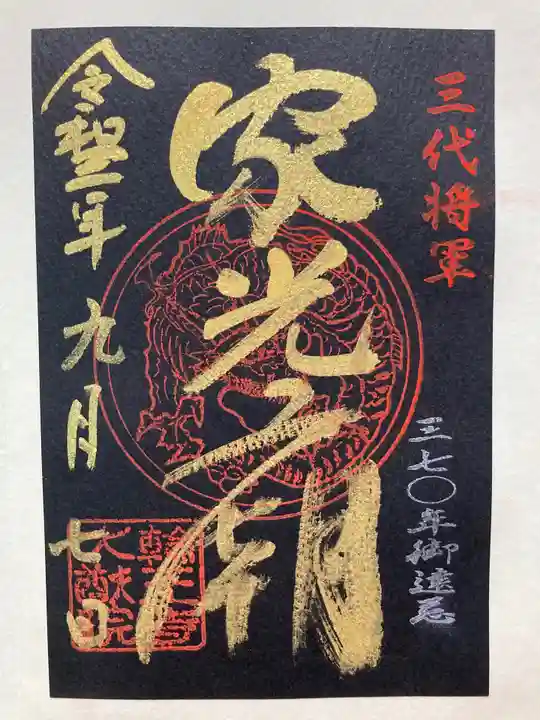 三代将軍
三七〇年御遠忌
家光廟
令和三年九月七日